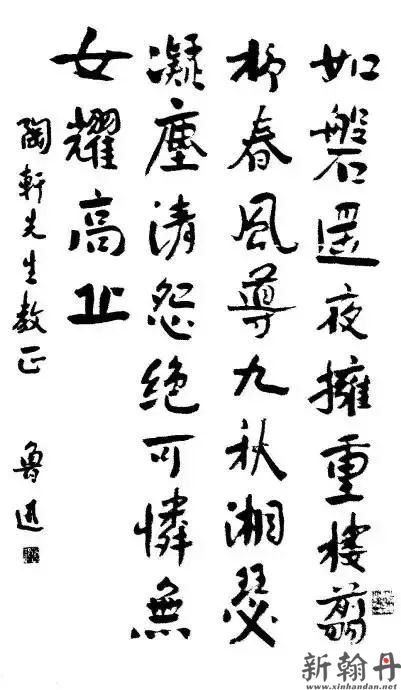 如磐遥夜擁重樓翦
柳春風導九秋湘瑟
凝塵清怨絶可憐無
女耀高丘
陶軒先生教正
魯迅
新翰丹
www.xinhandan.net